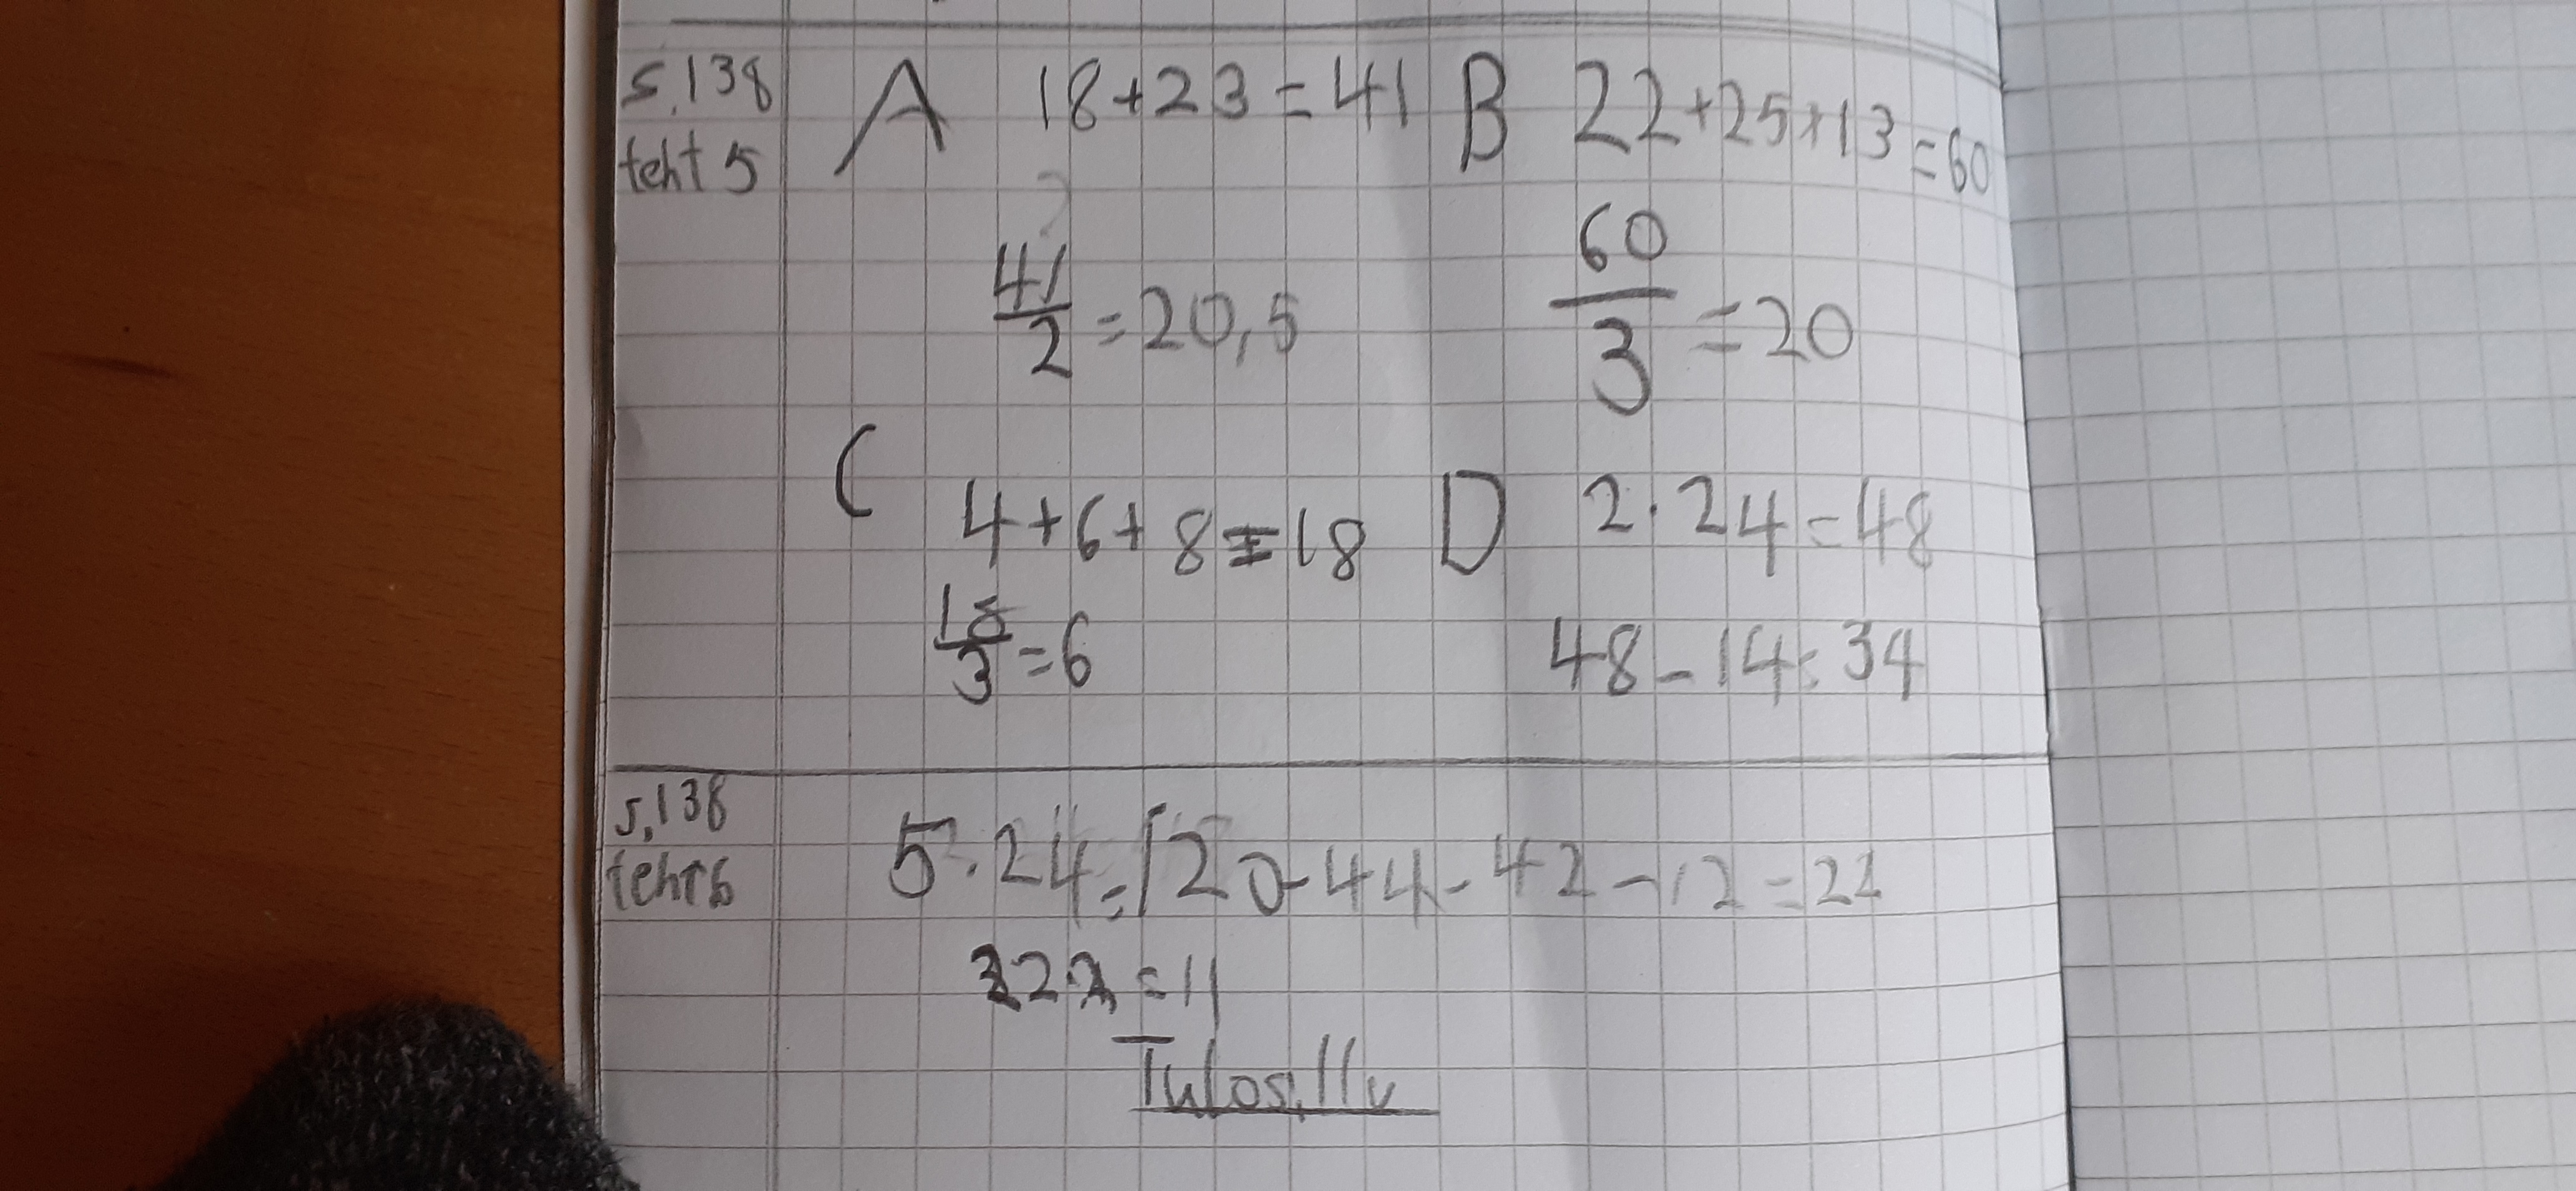 s.138
teht 5
A 18+23=41
41/2=20,5
B 22+25+13=60
60/3=20
C
4+6+8=18
18/3=6
D 2·24=48
48-14=34
s.138
teht 6
5·24=120-44-42-12=22
22:2=11
Tulos: 11v